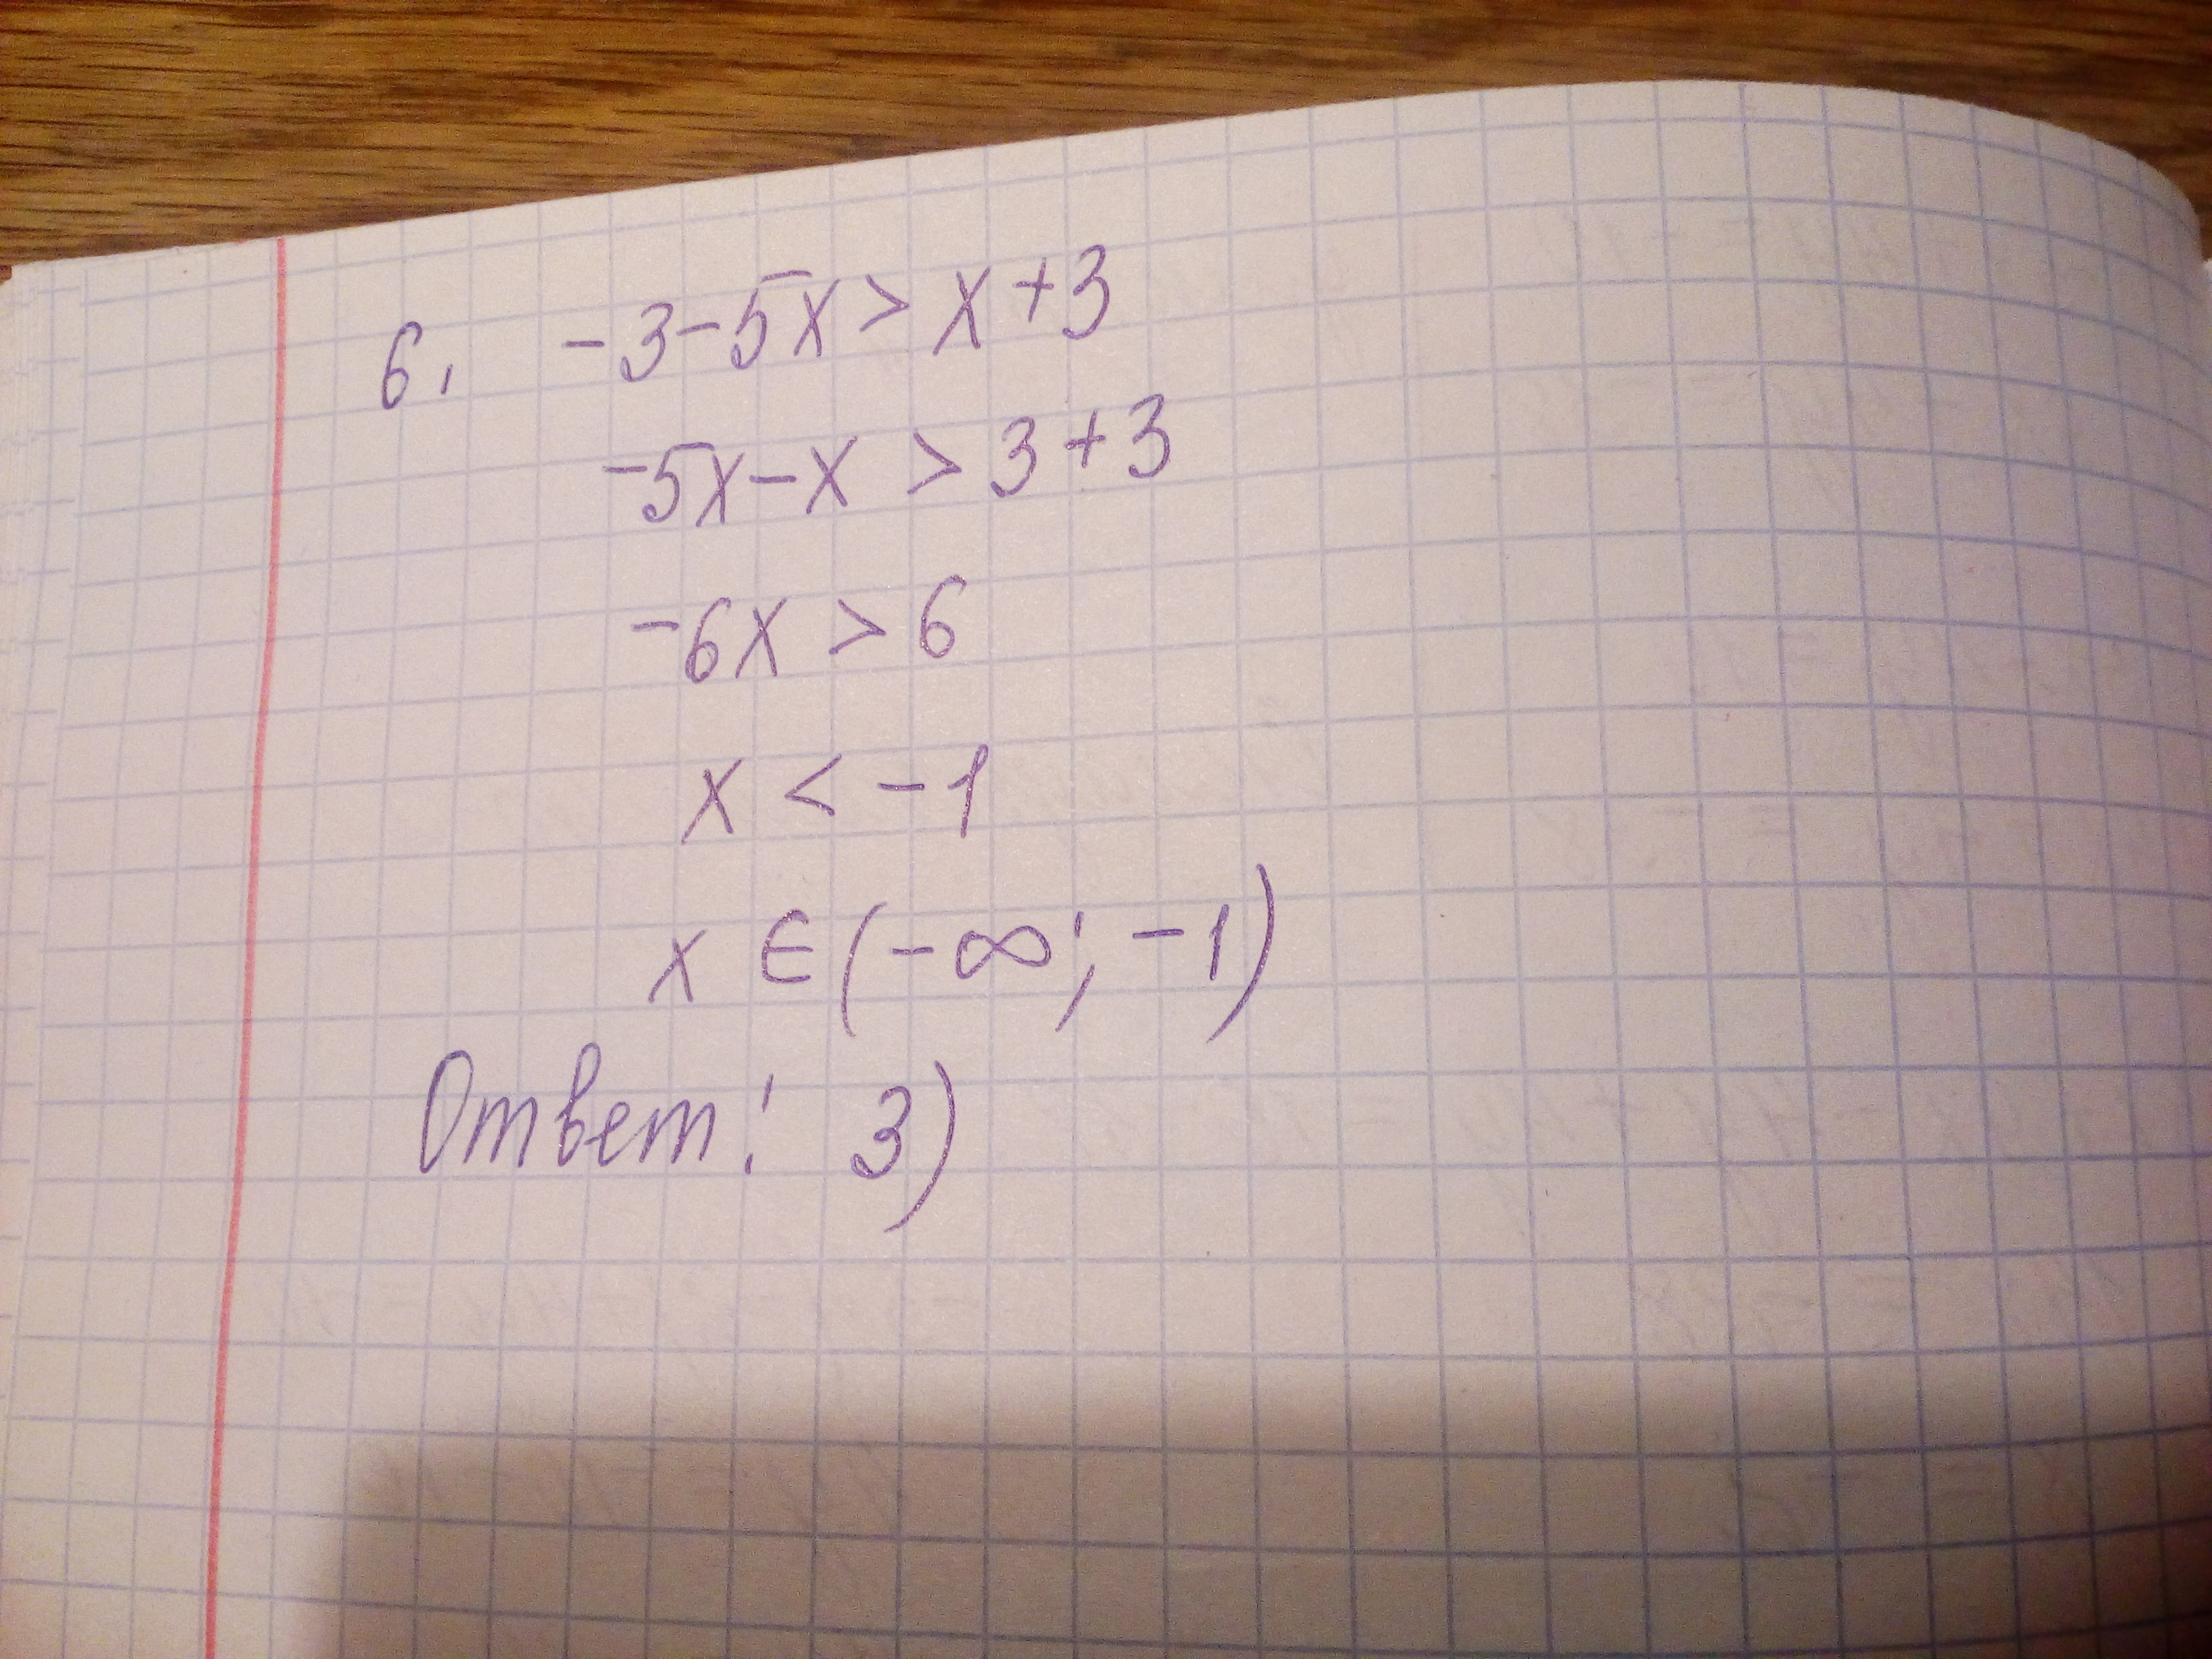 6. -3-5x > x+3
-5x-x > 3+3
-6x > 6
x < -1
x ∈ (-∞; -1)
Ответ: 3)